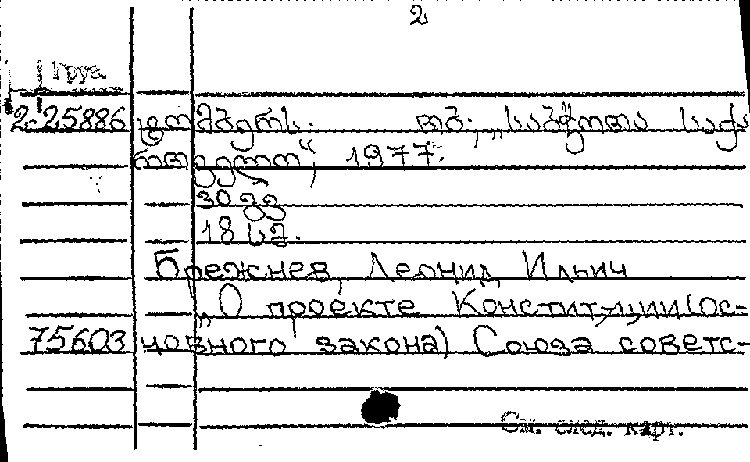 2
Груз.
2-25886 ფომბერს. თბ., „საბჭოთა საქა
რთველო“, 1977.
30 გვ
18 სმ.
Брежнев, Леонид Ильич
„О проекте Конституции(ос-
75603 новного закона) Союза советс-
См. след. карт.